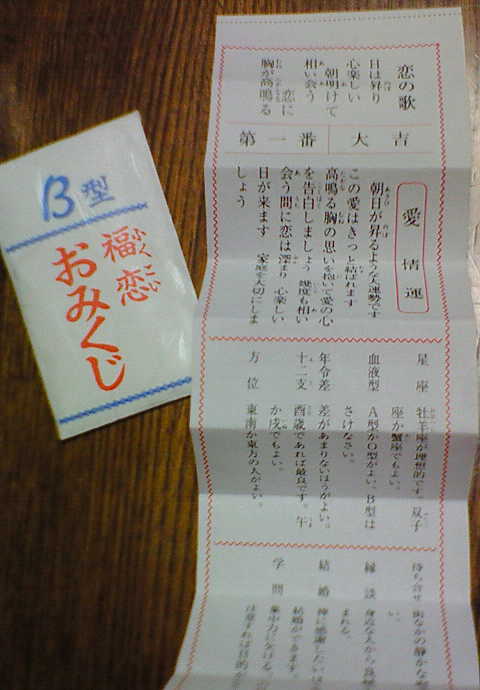 B型
福恋
ふくこい
おみくじ
恋の歌
日は昇り
心楽しい
朝明けて
相い会う
恋に
胸が高鳴る
第一番 大吉
愛情運
朝日が昇るような大運勢です
この愛はきっと結ばれます
高鳴る胸の思いを抱いて愛の心
を告白しましょう 幾度も相い
会う間に恋は深まり 心楽しい
日が来ます 家庭を大切にしま
しょう
星座 牡羊座が理想的です。双子
座か蟹座でもよい。
血液型 A型かO型がよい、B型は
さけなさい。
年令差 差があまりないほうがよい。
十二支 酉歳であれば最良です。午
か戌でもよい。
方位 東南か東方の人がよい。
待ち合せ 街なかの静かな
い。
縁談 身近な人から良
まれる。
結婚 神に感謝したい
結婚ができます。
学問 集中力に欠ける。
注意すれば目的が